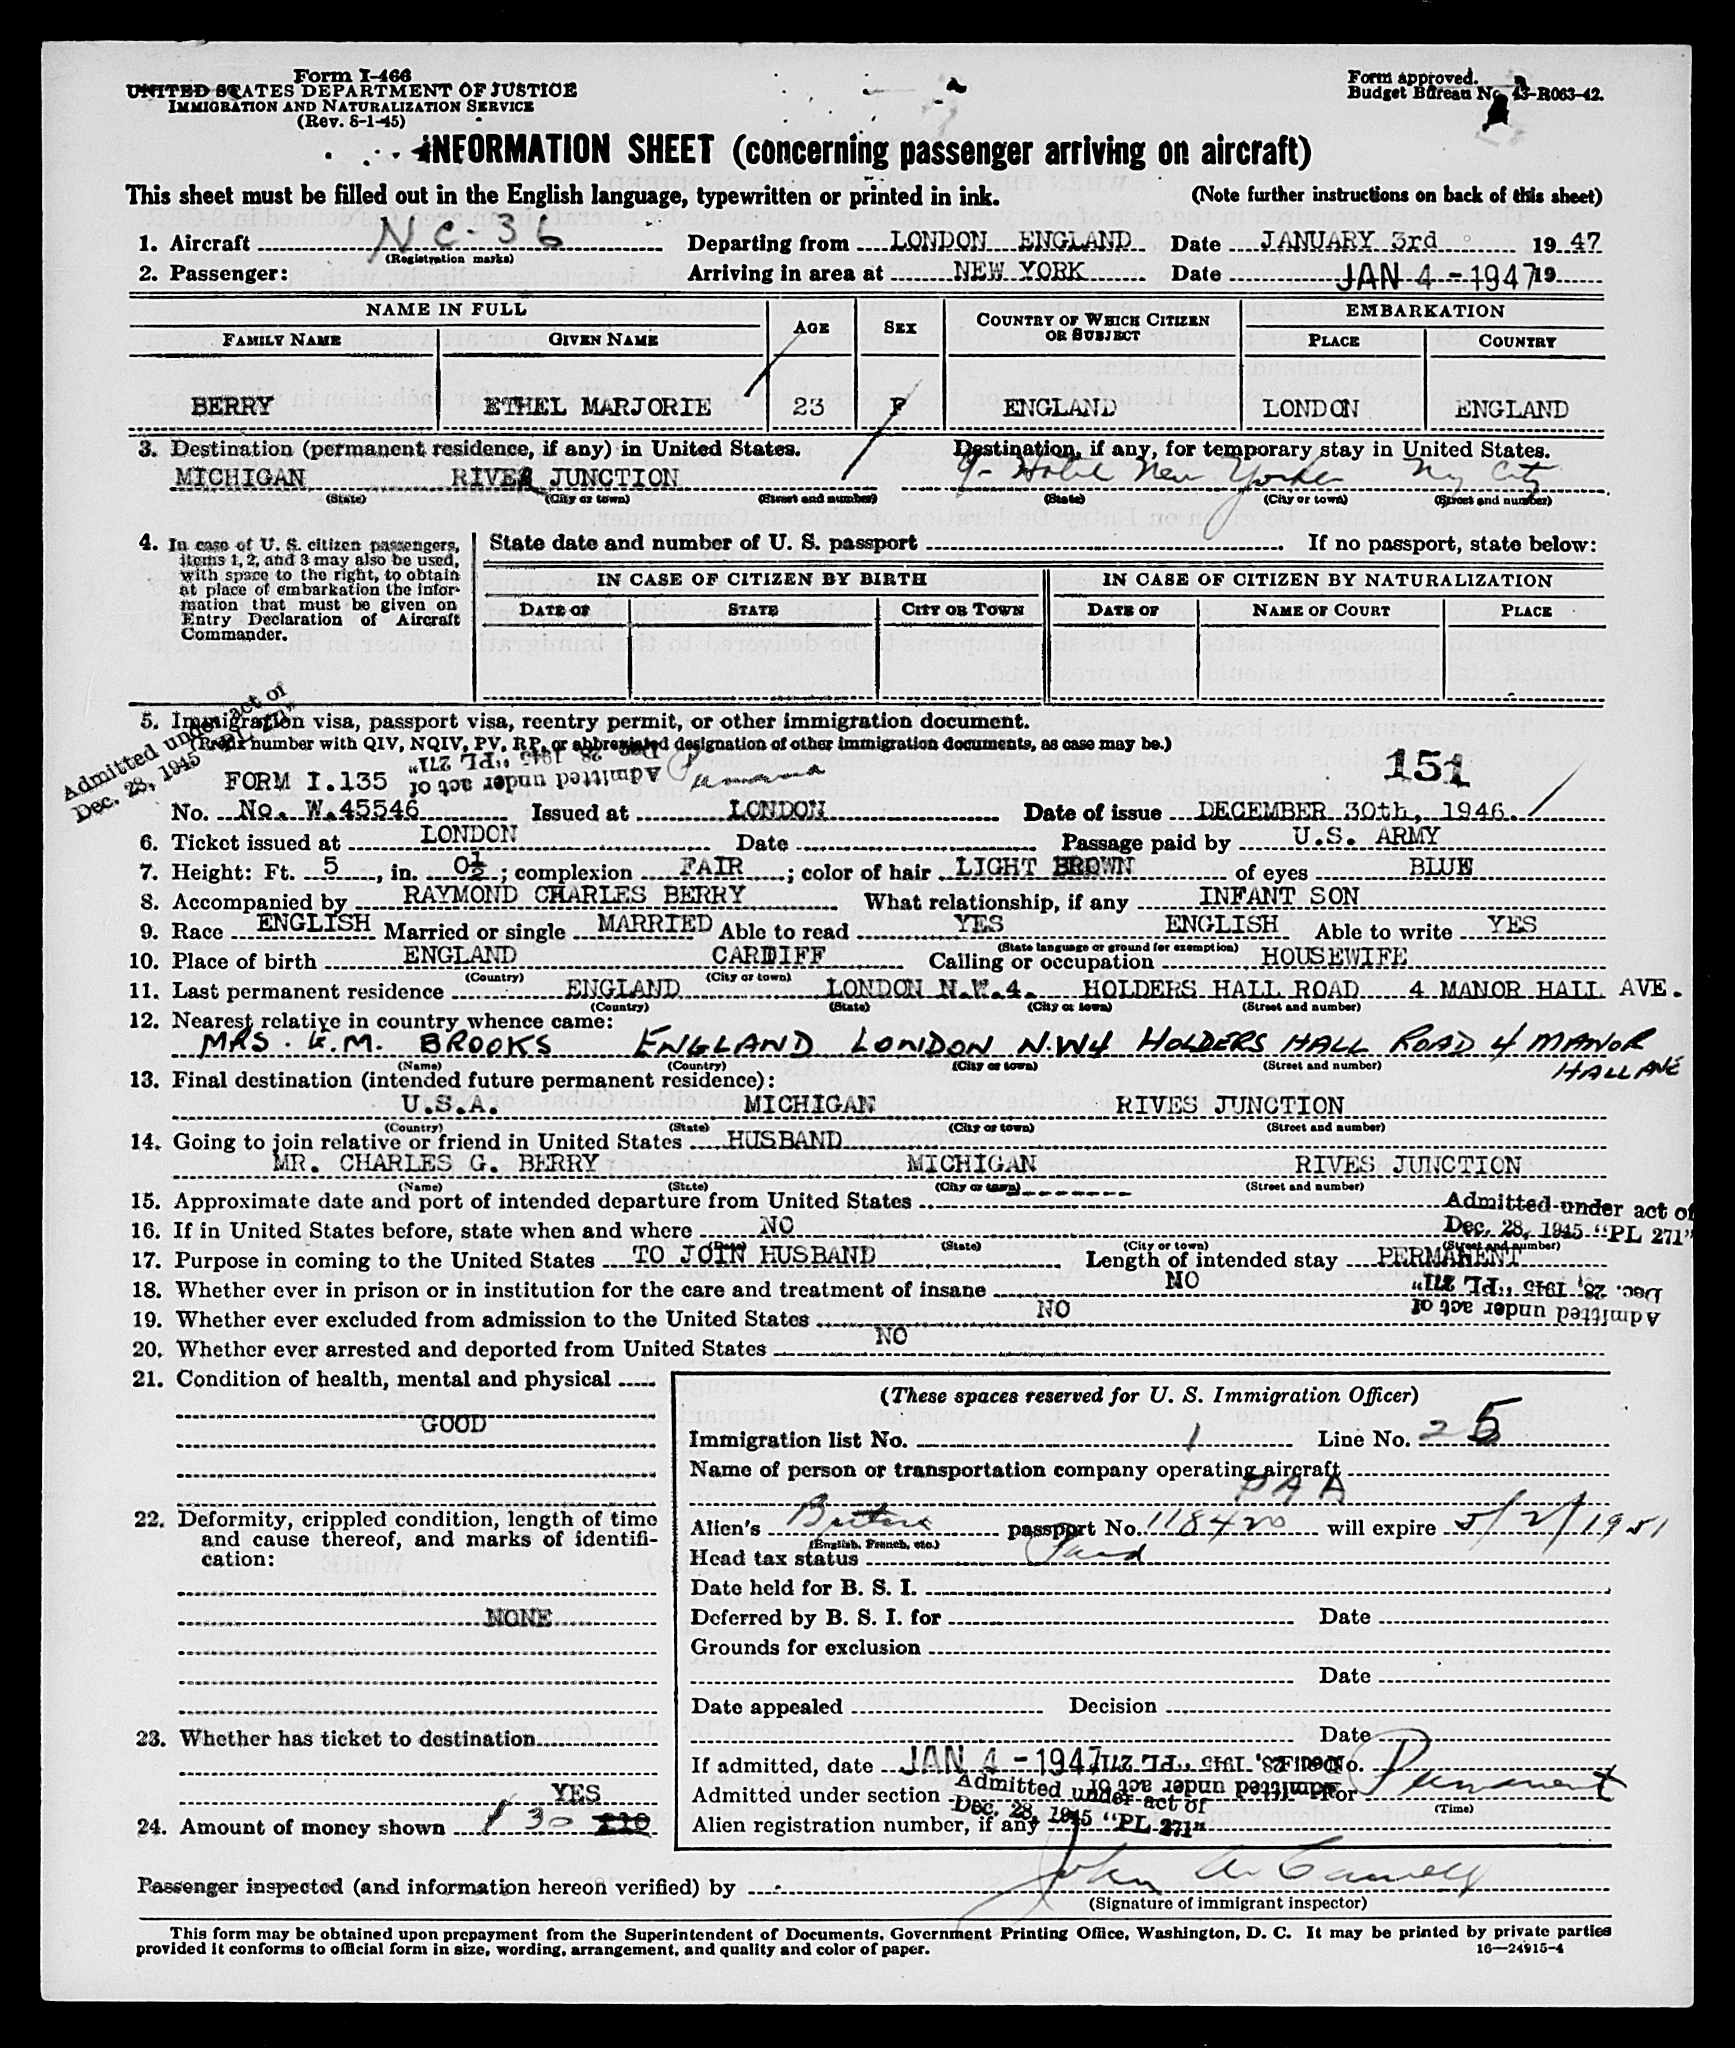 Form I-466
UNITED STATES DEPARTMENT OF JUSTICE
IMMIGRATION AND NATURALIZATION SERVICE
(Rev. 8-1-45)
Form approved.
Budget Bureau No. 43-R063-42.
INFORMATION SHEET (concerning passenger arriving on aircraft)
This sheet must be filled out in the English language, typewritten or printed in ink. (Note further instructions on back of this sheet)
1. Aircraft NC-36 Departing from LONDON ENGLAND Date JANUARY 3rd 1947
(Registration marks)
2. Passenger: Arriving in area at NEW YORK Date JAN 4 - 1947 19
NAME IN FULL AGE SEX COUNTRY OF WHICH CITIZEN OR SUBJECT EMBARKATION
FAMILY NAME GIVEN NAME PLACE COUNTRY
BERRY ETHEL MARJORIE 23 F ENGLAND LONDON ENGLAND
3. Destination (permanent residence, if any) in United States. Destination, if any, for temporary stay in United States.
MICHIGAN RIVES JUNCTION Hotel New Yorker NY City
(State) (City or town) (Street and number) (State) (City or town) (Street and number)
4. In case of U. S. citizen passengers, items 1, 2, and 3 may also be used, with space to the right, to obtain at place of embarkation the information that must be given on Entry Declaration of Aircraft Commander.
State date and number of U. S. passport If no passport, state below:
IN CASE OF CITIZEN BY BIRTH IN CASE OF CITIZEN BY NATURALIZATION
DATE OF STATE CITY OR TOWN DATE OF NAME OF COURT PLACE
Admitted under act of
Dec. 28, 1945 "PL 271"
5. Immigration visa, passport visa, reentry permit, or other immigration document.
(Prefix number with QIV, NQIV, PV, RP, or abbreviated designation of other immigration documents, as case may be.)
Admitted under act of
Dec. 28, 1945 "PL 271"
FORM I.135 151
No. No. W.45546 Issued at LONDON Date of issue DECEMBER 30th, 1946.
6. Ticket issued at LONDON Date Passage paid by U.S. ARMY
7. Height: Ft. 5, in. 0½; complexion FAIR; color of hair LIGHT BROWN of eyes BLUE
8. Accompanied by RAYMOND CHARLES BERRY What relationship, if any INFANT SON
9. Race ENGLISH Married or single MARRIED Able to read YES ENGLISH Able to write YES
(State language or ground for exemption)
10. Place of birth ENGLAND CARDIFF Calling or occupation HOUSEWIFE
(Country) (City or town)
11. Last permanent residence ENGLAND LONDON N.W.4. HOLDERS HALL ROAD 4 MANOR HALL AVE.
(Country) (State) (City or town) (Street and number)
12. Nearest relative in country whence came:
MRS. BROOKS ENGLAND LONDON N.W4 HOLDERS HALL ROAD 4 MANOR
HALL AVE
(Name) (Country) (City or town) (Street and number)
13. Final destination (intended future permanent residence):
U.S.A. MICHIGAN RIVES JUNCTION
(Country) (State) (City or town) (Street and number)
14. Going to join relative or friend in United States HUSBAND
MR. CHARLES G. BERRY MICHIGAN RIVES JUNCTION
(Name) (State) (City or town) (Street and number)
15. Approximate date and port of intended departure from United States
Admitted under act of
Dec. 28, 1945 "PL 271"
16. If in United States before, state when and where NO
(Date) (State) (City or town) (Street and number)
17. Purpose in coming to the United States TO JOIN HUSBAND Length of intended stay PERMANENT
18. Whether ever in prison or in institution for the care and treatment of insane NO
Admitted under act of
Dec. 28, 1945 "PL 271"
19. Whether ever excluded from admission to the United States NO
20. Whether ever arrested and deported from United States NO
21. Condition of health, mental and physical
GOOD
22. Deformity, crippled condition, length of time and cause thereof, and marks of identification:
NONE
23. Whether has ticket to destination
YES
24. Amount of money shown 30
(These spaces reserved for U. S. Immigration Officer)
Immigration list No. 1 Line No. 25
Name of person or transportation company operating aircraft
PAA
Alien's passport No. 118420 will expire 5/2/1951
(English, French, etc.)
Head tax status Paid
Date held for B. S. I.
Deferred by B. S. I. for Date
Grounds for exclusion
Date
Date appealed Decision
Date
If admitted, date JAN 4 - 1947 File No.
Admitted under act of
Dec. 28, 1945 "PL 271"
Admitted under section For Permanent
(Time)
Admitted under act of
Dec. 28, 1945 "PL 271"
Alien registration number, if any
Passenger inspected (and information hereon verified) by John
(Signature of immigrant inspector)
This form may be obtained upon prepayment from the Superintendent of Documents, Government Printing Office, Washington, D. C. It may be printed by private parties
provided it conforms to official form in size, wording, arrangement, and quality and color of paper. 16—24915-4